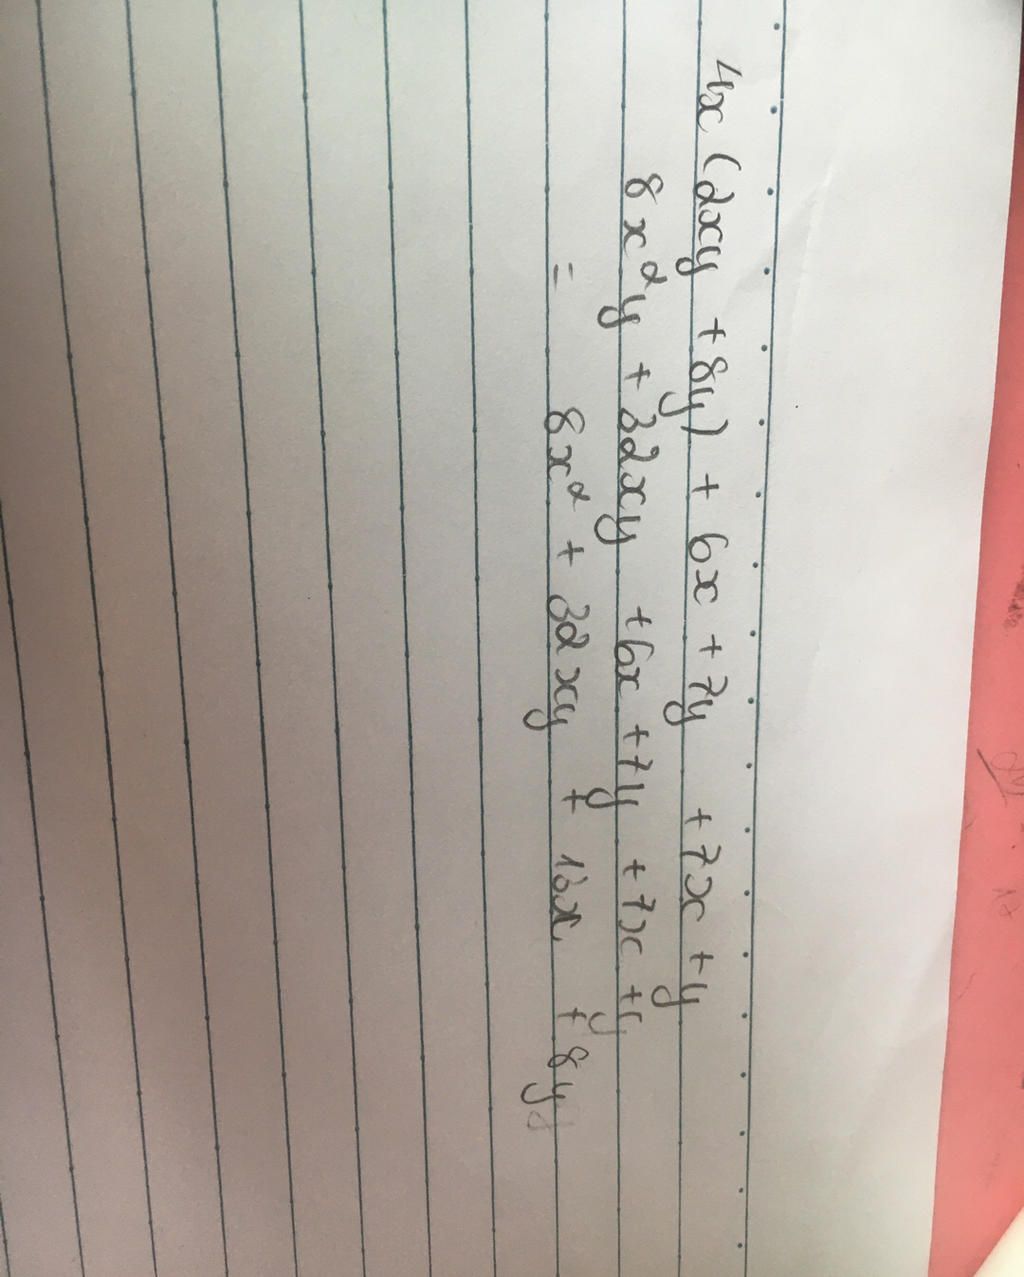 4x (2xy + 8y) + 6x + 7y + 7x + y
8x²y + 32xy + 6x + 7y + 7x + y
= 8x² + 32xy + 13x + 8y